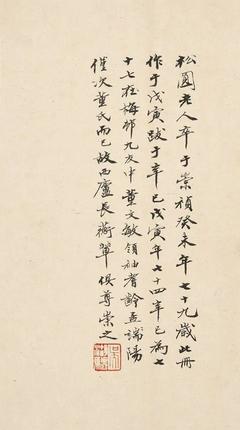 松圓老人卒于崇禎癸未年七十九歲此冊
作于戊寅跋于辛巳戊寅年七十四辛巳為七
十七在梅邨九友中董文敏領袖耆齡孟端陽
僅次董氏而已故西廬長蘅輩俱尊崇之